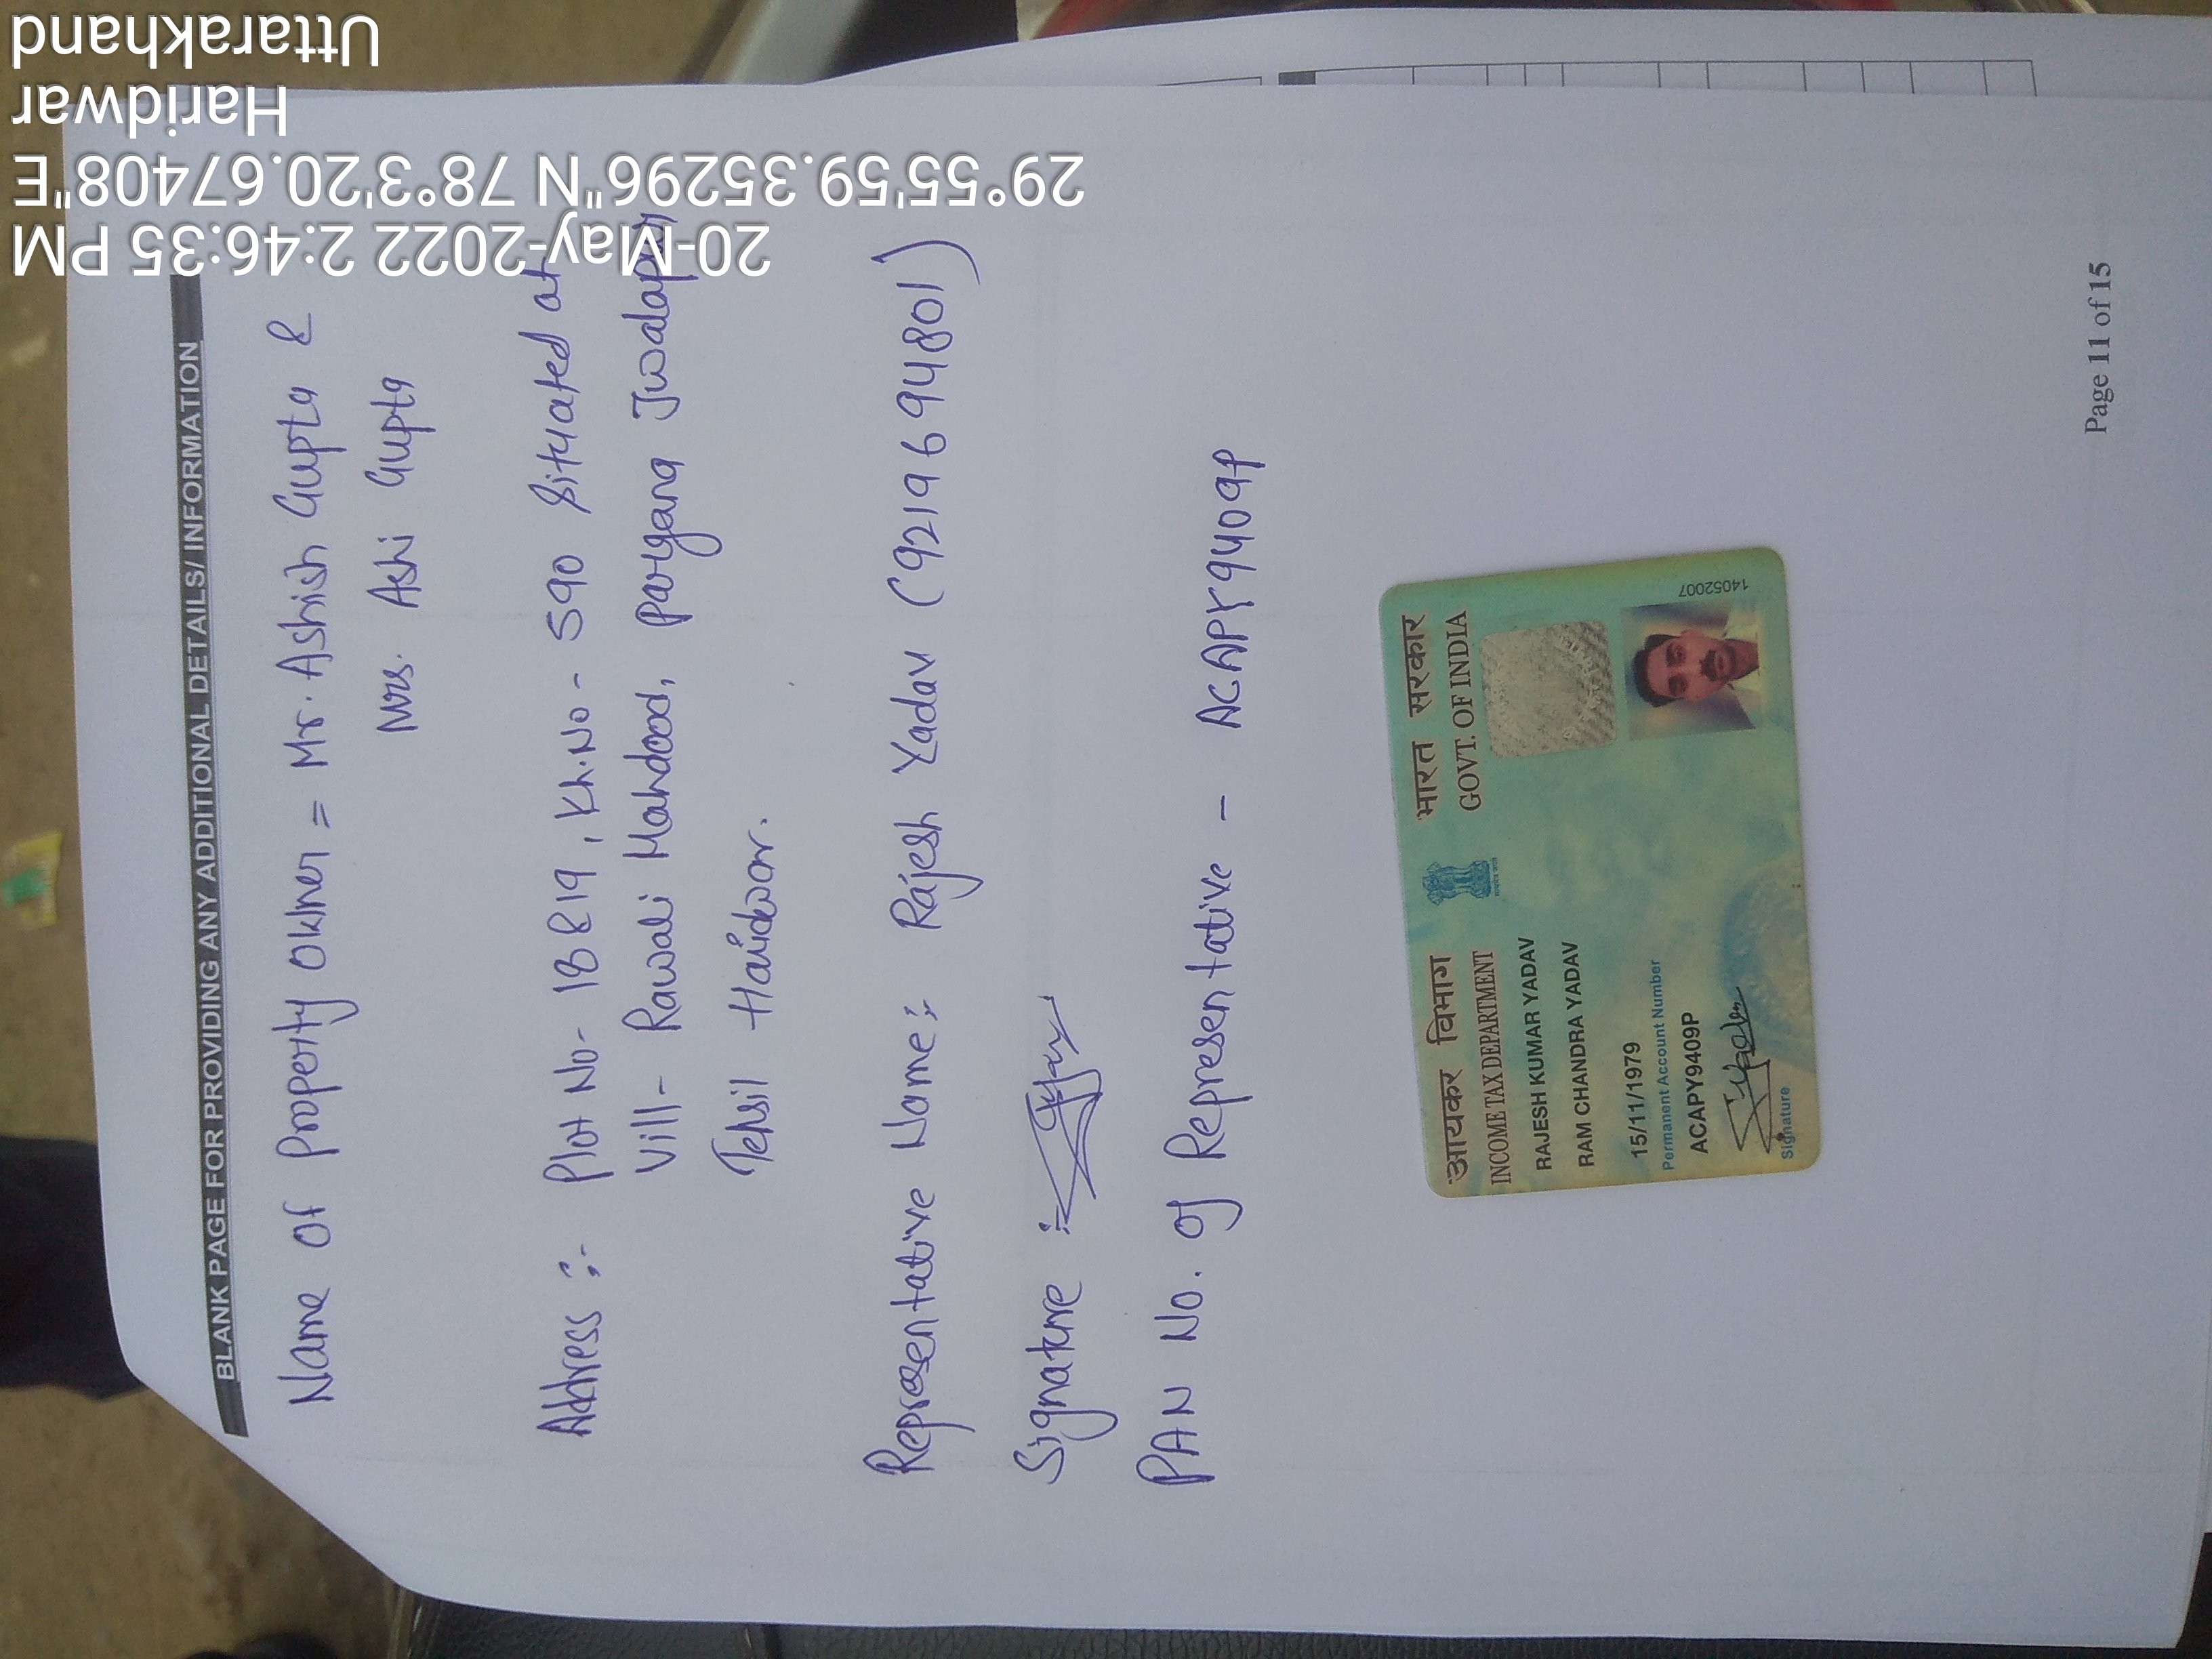 BLANK PAGE FOR PROVIDING ANY ADDITIONAL DETAILS/ INFORMATION
Name of Property Owner = Mr. Ashish Gupta &
Mrs. Ashi Gupta
Address :- Plot No- 18 & 19, Kh.No - 590 Situated at
Vill- Rawali Mahdood, pargana Jwalapur
Tehsil Haridwar.
Representative Name:- Rajesh Yadav (9219694801)
Signature :-
PAN No. of Representative - ACAPY9409P
आयकर विभाग भारत सरकार
INCOME TAX DEPARTMENT GOVT. OF INDIA
RAJESH KUMAR YADAV
RAM CHANDRA YADAV
15/11/1979
Permanent Account Number
ACAPY9409P
Signature
14052007
Page 11 of 15
20-May-2022 2:46:35 PM
29°55'59.35296"N 78°3'20.67408"E
Haridwar
Uttarakhand